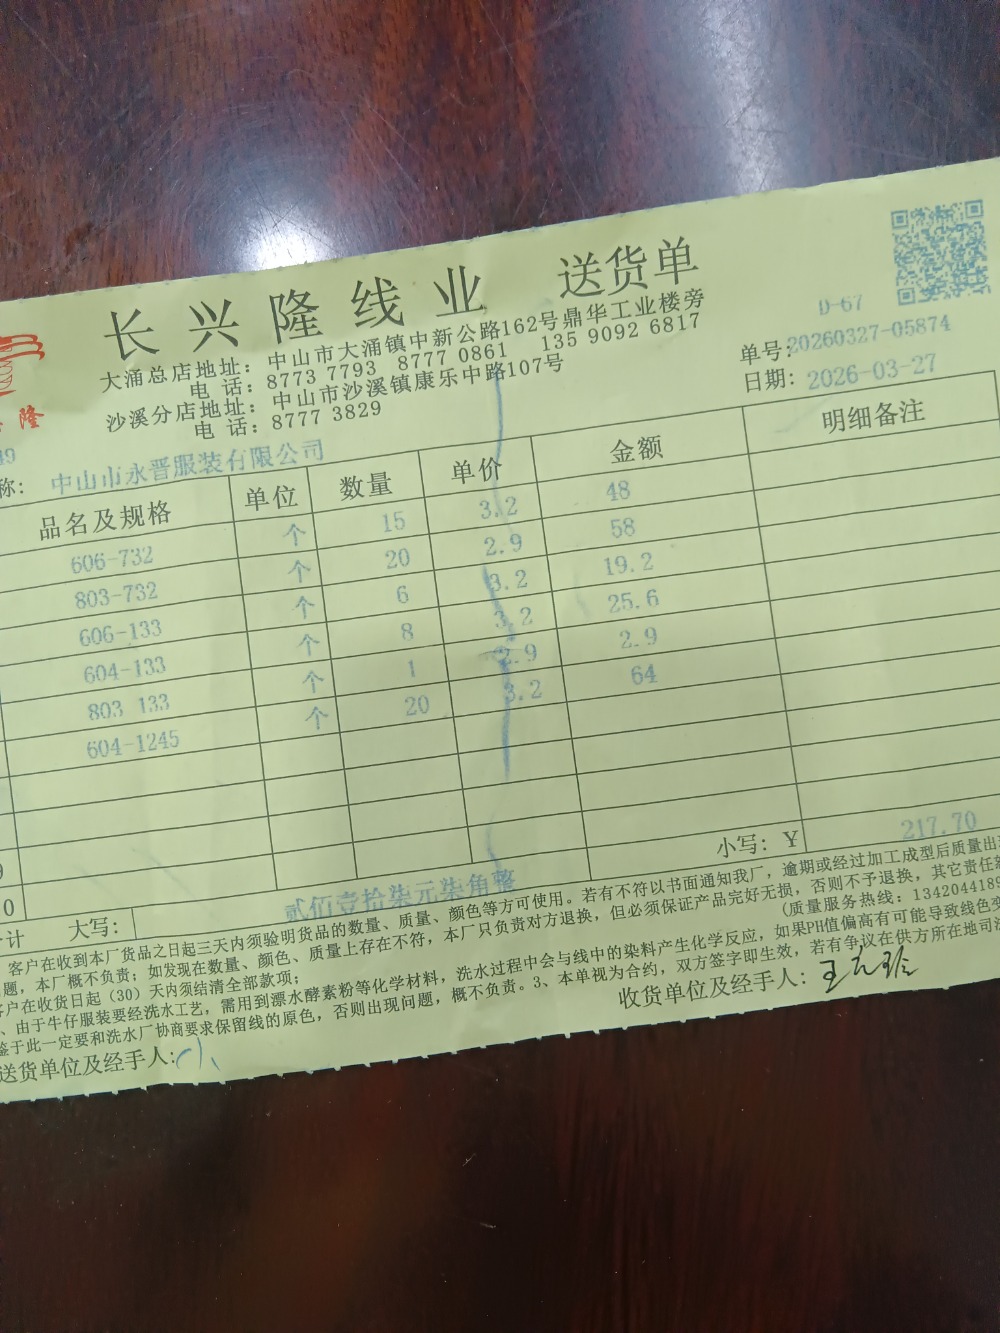 长兴隆线业 送货单
大涌总店地址：中山市大涌镇中新公路162号鼎华工业楼旁
电 话：8773 7793 8777 0861 135 9092 6817
沙溪分店地址：中山市沙溪镇康乐中路107号
电 话：8777 3829
隆
D-67
单号：20260327-05874
日期：2026-03-27
称：中山市永晋服装有限公司
品名及规格 单位 数量 单价 金额 明细备注
606-732 个 15 3.2 48
803-732 个 20 2.9 58
606-133 个 6 3.2 19.2
604-133 个 8 3.2 25.6
803 133 个 1 2.9 2.9
604-1245 个 20 3.2 64
计 大写：贰佰壹拾柒元柒角整 小写：￥ 217.70
客户在收到本厂货品之日起三天内须验明货品的数量、质量、颜色等方可使用。若有不符以书面通知我厂，逾期或经过加工成型后质量出
题，本厂概不负责；如发现在数量、颜色、质量上存在不符，本厂只负责对方退换，但必须保证产品完好无损，否则不予退换，其它责任
客户在收货日起（30）天内须结清全部款项； （质量服务热线：1342044189
、由于牛仔服装要经洗水工艺，需用到漂水酵素粉等化学材料，洗水过程中会与线中的染料产生化学反应，如果PH值偏高有可能导致线色变
鉴于此一定要和洗水厂协商要求保留线的原色，否则出现问题，概不负责。3、本单视为合约，双方签字即生效，若有争议在供方所在地司法
送货单位及经手人： 收货单位及经手人：